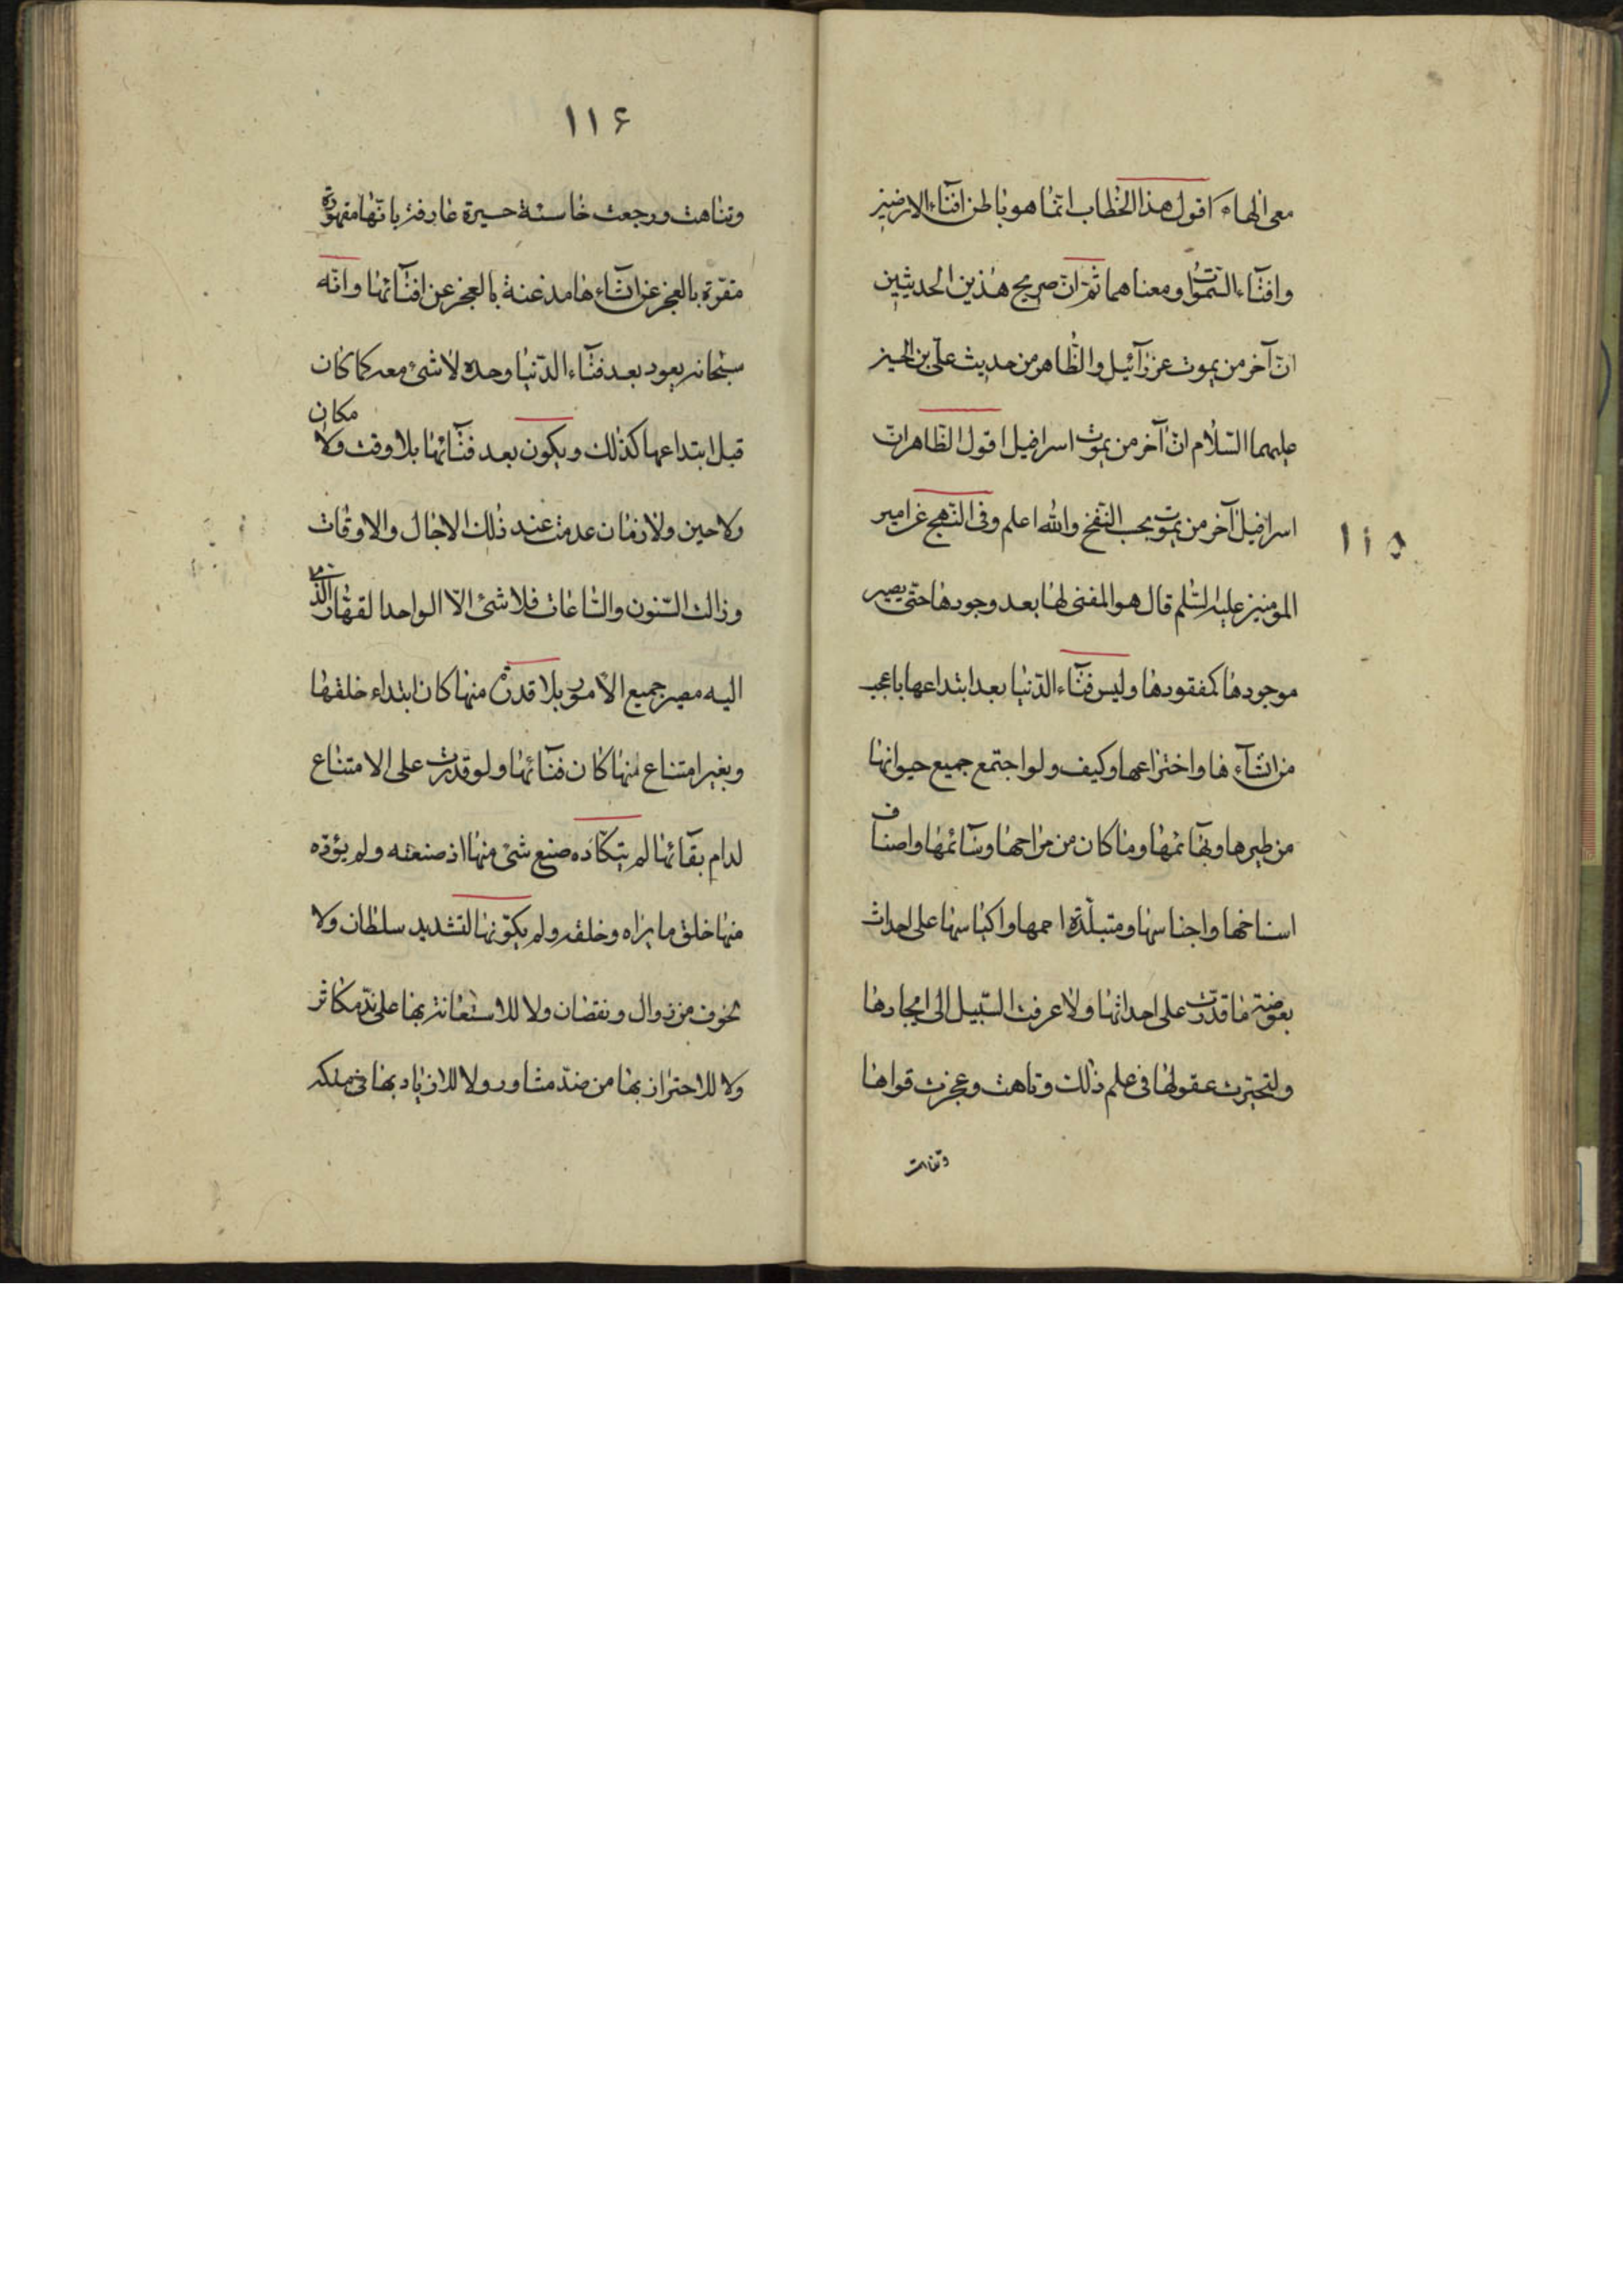 معى الهاه اقول هذا الخطاب انما هو باطن افناء الارضين
وافناء السموات ومعناهما ثم ان صريح هذين الحديثين
ان آخر من يموت عزرآئيل والظاهر من حديث على بن الحسين
عليهما السلام ان آخر من يموت اسرافيل اقول الظاهر ان
اسرافيل آخر من يموت بحسب النفخ والله اعلم وفى النهج عن امير
المومنين عليه السلم قال هو المفنى لها بعد وجودها حتى يصير
موجودها كمفقودها وليس فنآء الدنيا بعد ابتداعها باعجب
من انشآءها واختراعها وكيف ولو اجتمع جميع حيوانها
من طيرها وبهآئمها وما كان من مراحها وسآئمها واصناف
اسناخها واجناسها ومتبلدة اممها واكياسها على احداث
بعوضة ما قدرت على احداثها ولا عرفت السبيل الى ايجادها
ولتحيرت عقولها فى علم ذلك وتاهت وعجزت قواها
وتناهت
١١٥
١١۶
وتناهت ورجعت خاسئة حسيرة عارفة بانها مقهورة
مقرة بالعجز عن انشآءها مذعنة بالعجز عن افنآئها وانه
سبحانه يعود بعد فنآء الدنيا وحده لا شئ معه كما كان
قبل ابتداعها كذلك ويكون بعد فنآئها بلا وقت ولا مكان
ولا حين ولا زمان عدمت عند ذلك الاجال والاوقات
وزالت السنون والساعات فلا شئ الا الواحد القهار الذى
اليه مصير جميع الامور بلا قدرة منها كان ابتداء خلقها
وبغير امتناع منها كان فنآئها ولو قدرت على الامتناع
لدام بقآئها لم يتكآده صنع شئ منها اذ صنعه ولم يؤده
منها خلق ما براه وخلقه ولم يكونها لتشديد سلطان ولا
لخوف من زوال ونقصان ولا للاستعانة بها على ند مكاثر
ولا للاحتراز بها من ضد مثاور ولا للازدياد بها فى ملكه